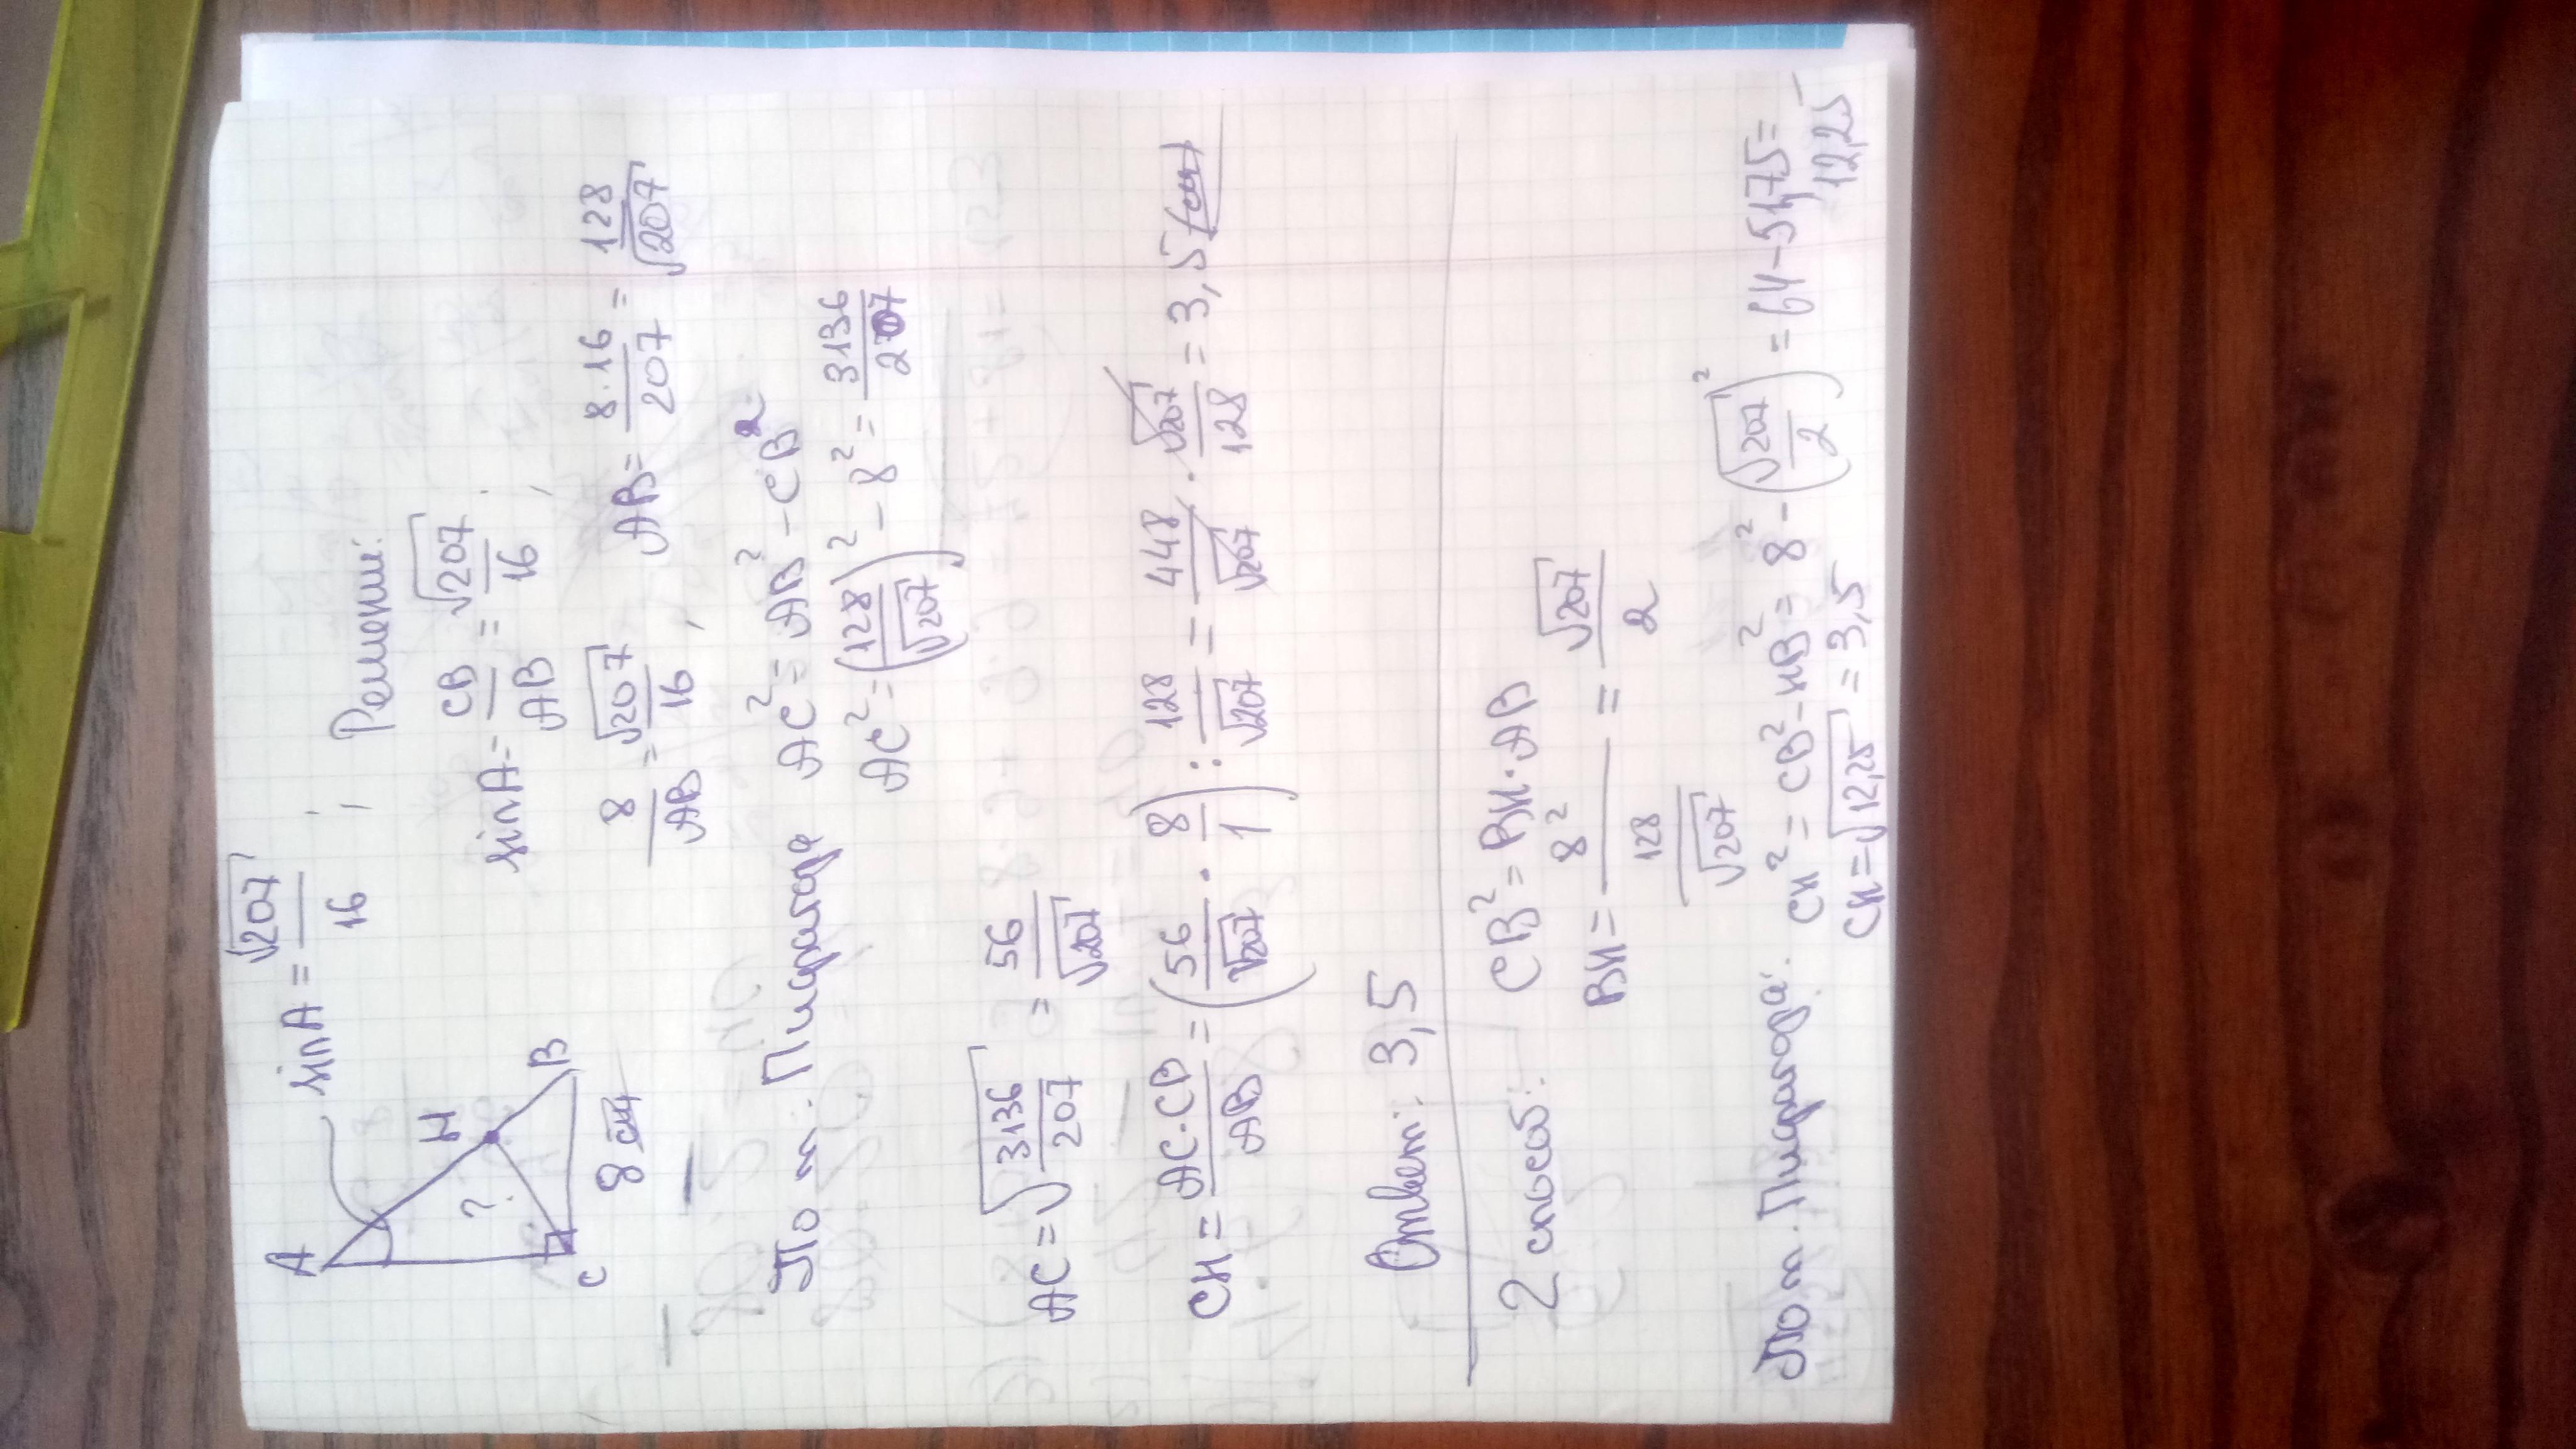 sinA = √207/16 ;
A
H
?
C
B
8 см
Решении:
sinA = CB/AB = √207/16 ;
8/AB = √207/16 , AB = 8·16/207 = 128/√207
По т. Пифагора AC² = AB² - CB²
AC² = (128/√207)² - 8² = 3136/207
AC = √3136/207 = 56/√207
CH = AC·CB/AB = (56/√207 · 8/1) : 128/√207 = 448/√207 · √207/128 = 3,5 (см)
Ответ: 3,5
2 способ: CB² = BH·AB
BH = 8²/128/√207 = √207/2
По т. Пифагора: CH² = CB² - HB² = 8² - (√207/2)² = 64 - 51,75 =
12,25
CH = √12,25 = 3,5